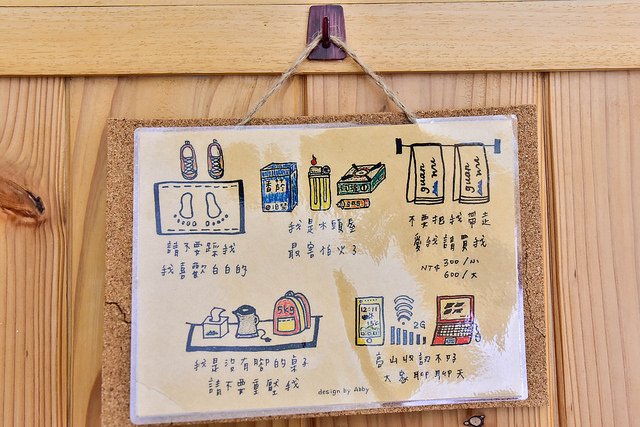 guan wu
guan wu
請不要踩我
我喜歡白白的
我是木頭屋
最害怕火了
不要把我帶走
愛我請買我
NT$ 300/小
600/大
5kg
我是沒有腳的桌子
請不要重壓我
12:11
15c
2G
高山收訊不好
大家聊聊天
design by Abby